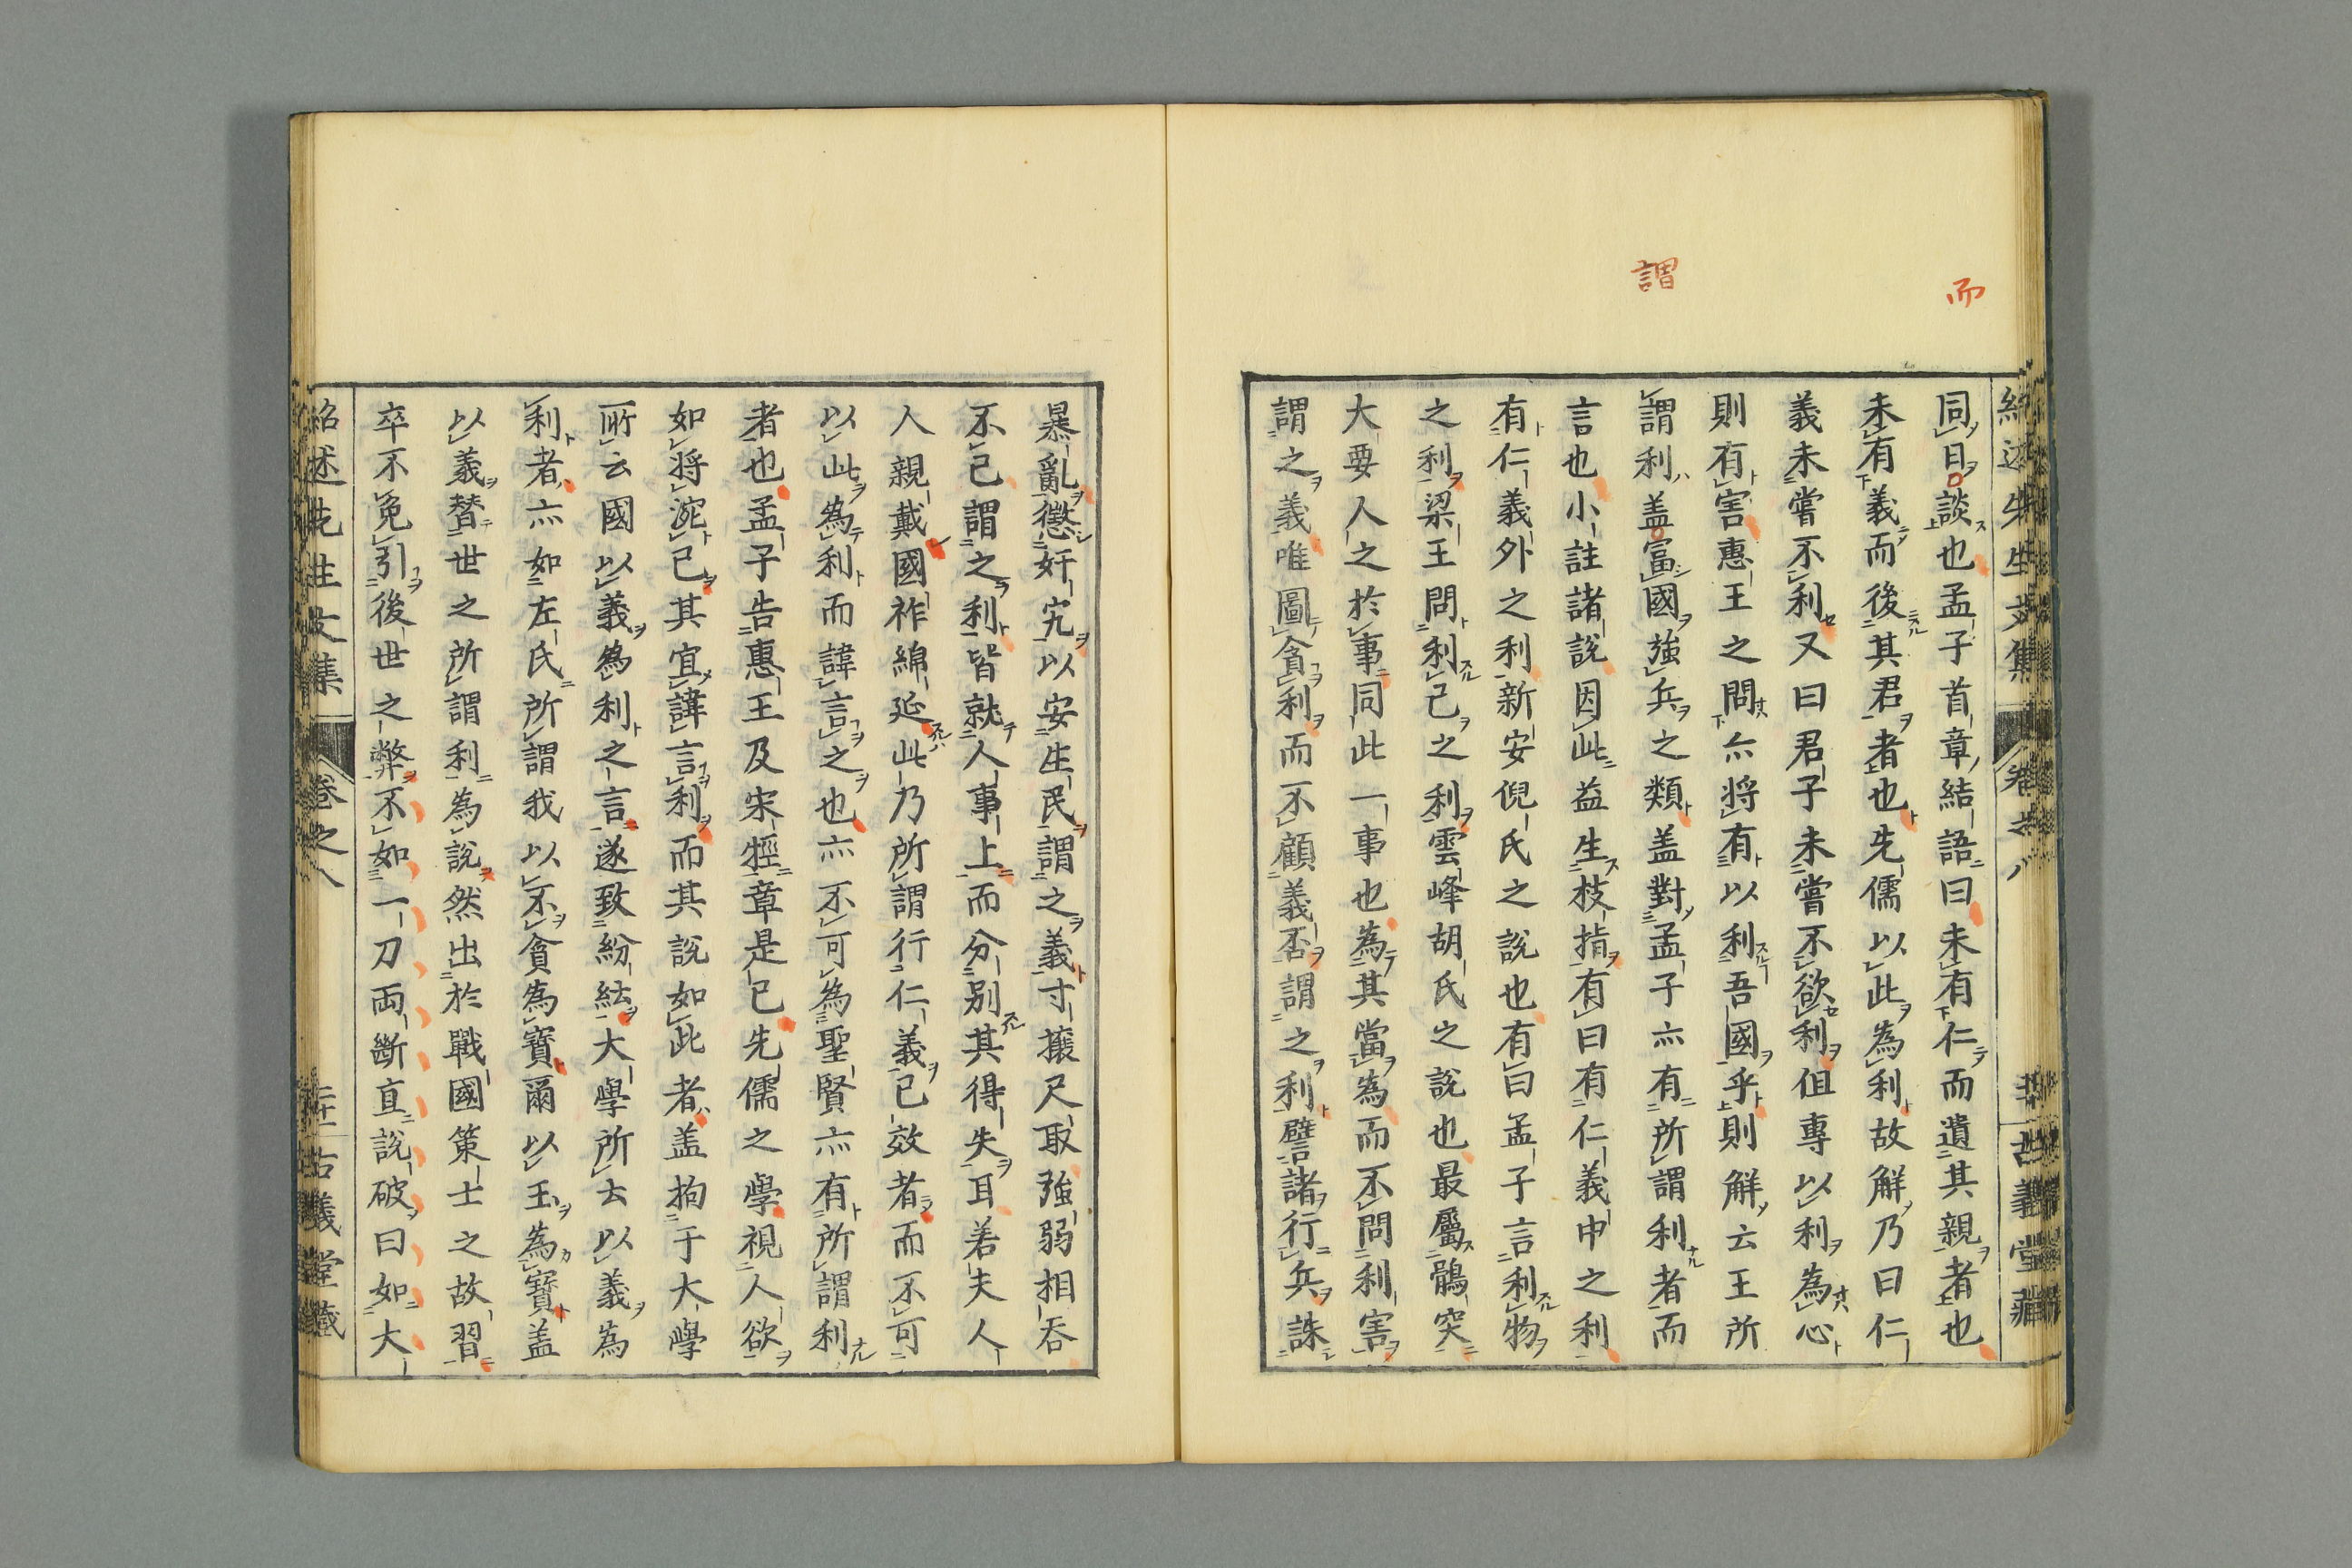 而
謂
同日談也孟子首章結語曰未有仁而遺其親者也
未有義而後其君者也先儒以此為利故解乃曰仁
義未嘗不利又曰君子未嘗不欲利但專以利為心
則有害惠王之問亦將有以利吾國乎則解云王所
謂利盖富國強兵之類盖對孟子亦有所謂利者而
言也小註諸說因此益生枝指有曰有仁義中之利
有仁義外之利新安倪氏之說也有曰孟子言利物
之利梁王問利己之利雲峰胡氏之說也最屬鶻突
大要人之於事同此一事也為其當為而不問利害
謂之義唯圖貪利而不顧義否謂之利譬諸行兵誅
暴亂懲奸宄以安生民謂之義寸攘尺取強弱相吞
不已謂之利皆就人事上而分別其得失耳若夫人
人親戴國祚綿延此乃所謂行仁義已效者而不可
以此為利而諱言之也亦不可為聖賢亦有所謂利
者也孟子告惠王及宋牼章是已先儒之學視人欲
如將浼己其宜諱言利而其說如此者盖拘于大學
所云國以義為利之言遂致紛紜大學所云以義為
利者亦如左氏所謂我以不貪為寶爾以玉為寶盖
以義替世之所謂利為說然出於戰國策士之故習
卒不免引後世之弊不如一刀兩斷直說破曰如大
紹述先生文集 卷之八 古義堂藏